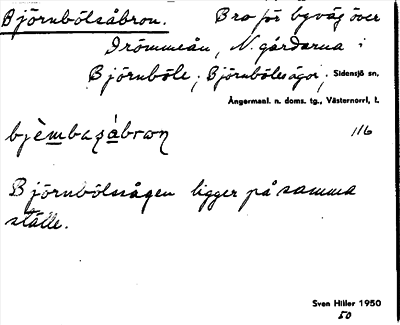 Björnbölsåbron. Bro för byväg över
Drömmeån, N. gårdarna i
Björnböle, Björnbölesägor, Sidensjö sn,
Ångermanl. n. doms. tg., Västernorrl. l.
116
Björnbölssågen ligger på samma
ställe.
Sven Hiller 1950
50